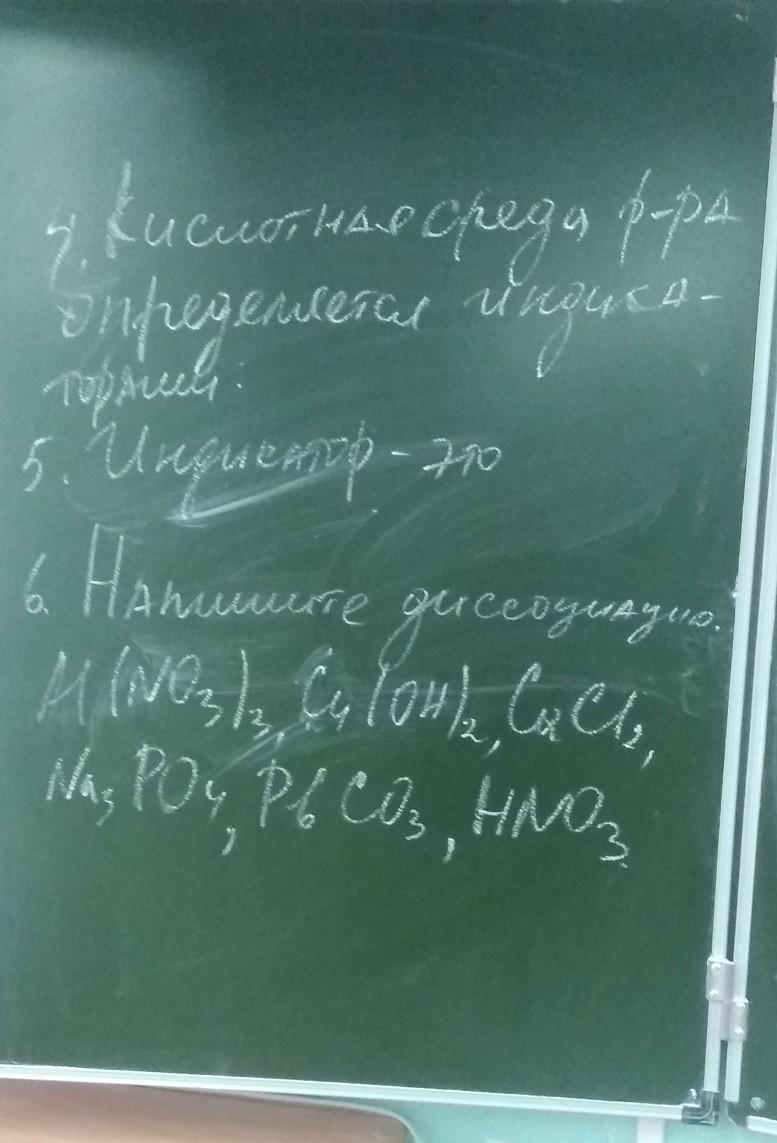 4. Кислотная среда р-ра
определяется индика-
торами:
5. Индикатор - это
6. Напишите диссоциацию.
Al(NO₃)₃, Cu(OH)₂, CaCl₂,
Na₃PO₄, PbCO₃, HNO₃